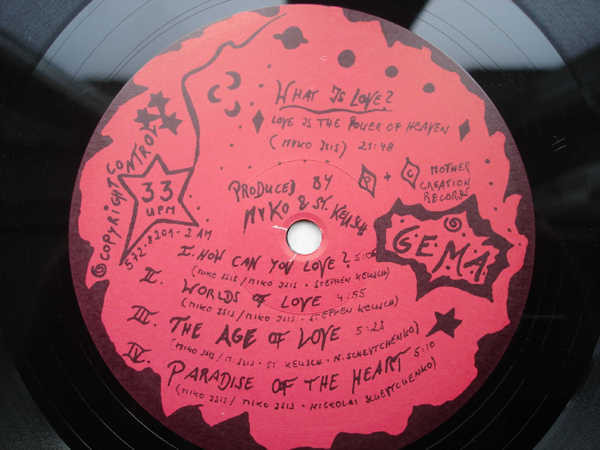 WHAT IS LOVE?
LOVE IS THE POWER OF HEAVEN
(MIKO ISIS) 21:48
PRODUCED BY
MYKO & ST. KEUSCH
R + C
MOTHER
CREATION
RECORDS
©COPYRIGHT CONTROL
33
UPM
572.8201-2 AM
GEMA
I. HOW CAN YOU LOVE? 5:06
(MIKO ISIS / MIKO ISIS - STEPHEN KEUSCH)
II. WORLDS OF LOVE 4:55
(MIKO ISIS / MIKO ISIS - STEPHEN KEUSCH)
III. THE AGE OF LOVE 5:23
(MIKO ISIS / M. ISIS - ST. KEUSCH - N. SCHEVTCHENKO)
IV. PARADISE OF THE HEART 5:10
(MIKO ISIS / MIKO ISIS - NICKOLAI SCHEVTCHENKO)